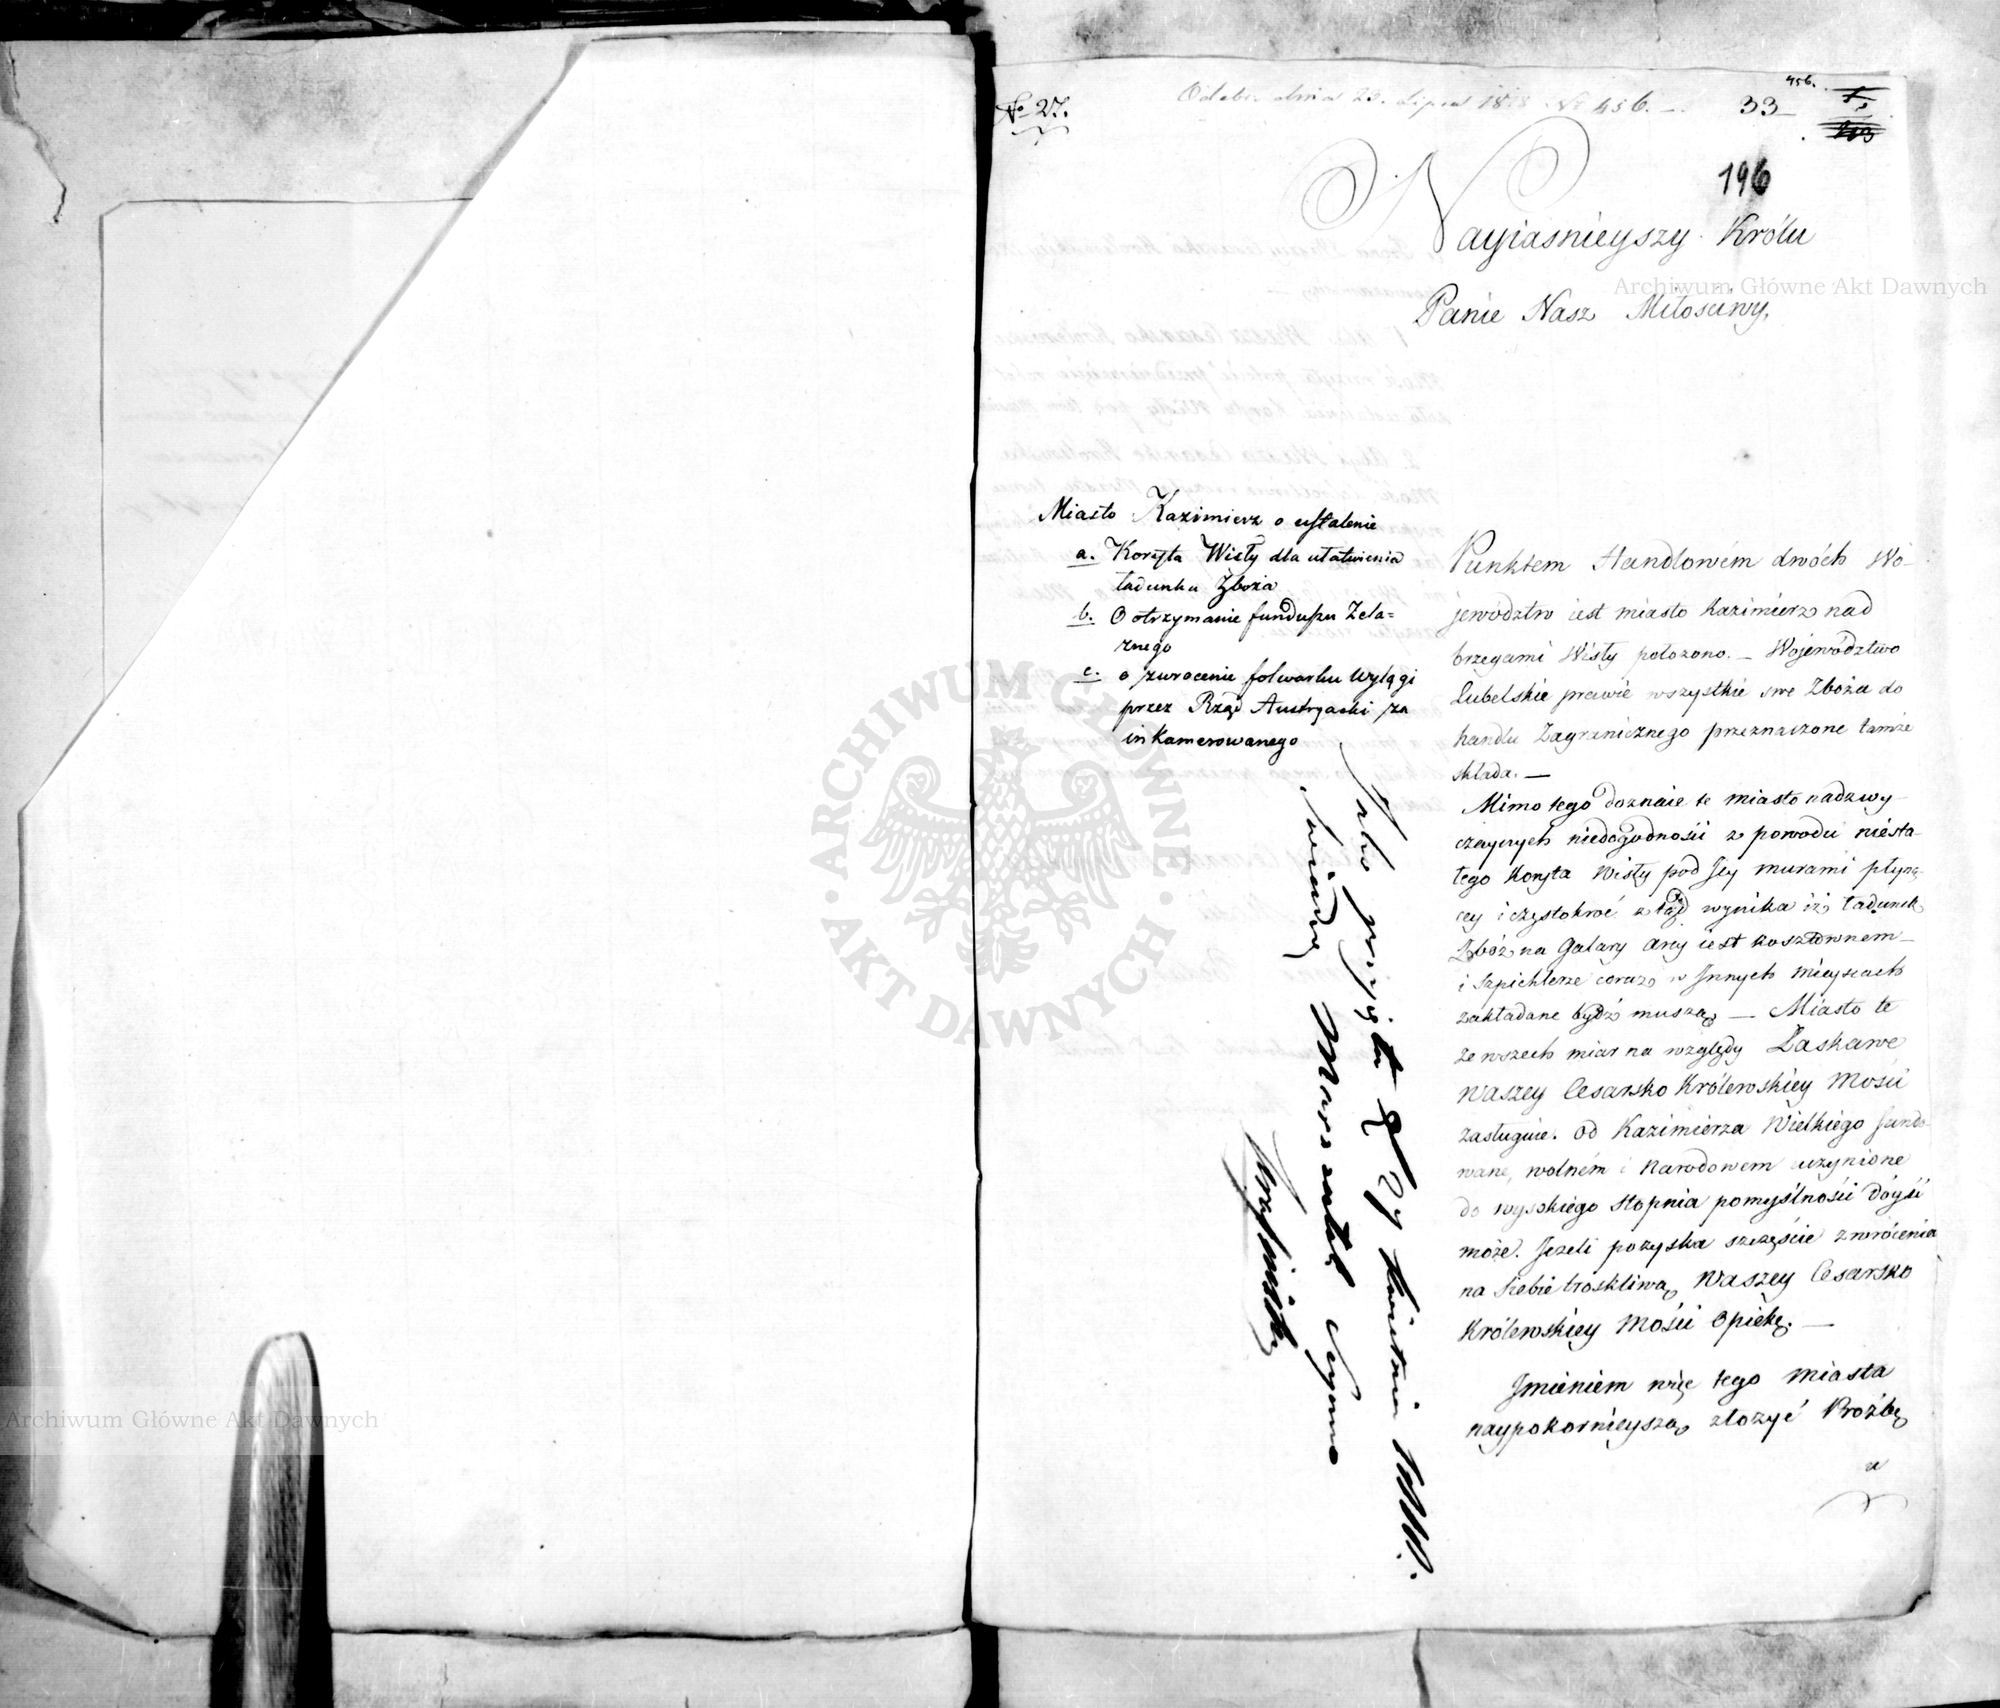 No 27.
Odebr. dnia 23. Lipca 1818 No 456. —
456.
33
196
Nayiasnieyszy Królu
Panie Nasz Miłościwy,
Archiwum Główne Akt Dawnych
Miasto Kazimierz o ustalenie
a. Koryta Wisły dla ułatwienia
ładunku Zboża
b. O otrzymanie funduszu Żela=
znego
c. o zwrocenie folwarku Wylągi
przez Rząd Austryacki za
inkamerowanego
Jako przyięte 24 Kwietnia
świadczę Marszałek Seymu
Punktem Handlowém dwóch Wo-
jewództw iest miasto Kazimierz nad
brzegami Wisły położono. — Województwo
Lubelskie prawie wszystkie swe Zboża do
handlu Zagranicznego przeznaczone tamże
składa. —
Mimo tego doznaie te miasto nadzwy-
czaynych niedogodności z powodu niesta-
łego Koryta Wisły pod Jey murami płyną-
cey i częstokroć ztąd wynika iż ładunek
Zbóż na Galary arcy iest kosztownem —
i Szpichlerze coraz w Innych mieyscach
zakładane bydź muszą. — Miasto te
ze wszech miar na względy Łaskawe
Waszey Cesarsko Królewskiey Mości
zasługuie. Od Kazimierza Wielkiego fundo-
wane, wolném i Narodowem uczynione
do wysokiego stopnia pomyślności dóyść
może. Jeżeli pozyska szczęście zwrócenia
na siebie troskliwą Waszey Cesarsko
Królewskiey Mości Opiekę. —
Imieniem więc tego miasta
naypokornieyszą złożyć Proźbę
Archiwum Główne Akt Dawnych
ARCHIWUM GŁÓWNE · AKT DAWNYCH ·